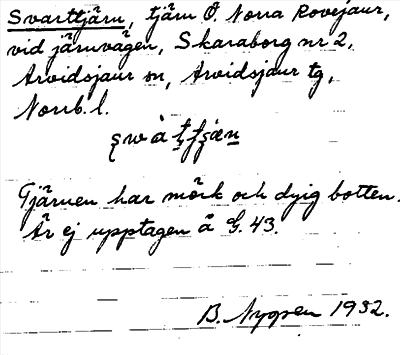 Svarttjärn, tjärn Ö. Norra Rovejaur,
vid järnvägen, Skaraborg nr 2,
Arvidsjaur sn, Arvidsjaur tg,
Norrb. l.
Tjärnen har mörk och dyig botten.
Är ej upptagen å G. 43.
B. Nygren 1932.